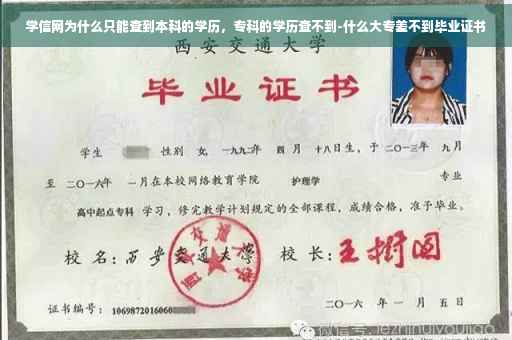 学信网为什么只能查到本科的学历，专科的学历查不到-什么大专差不到毕业证书
西安交通大学
毕业证书
学生 性别 女，一九九二年 四 月 十八日生，于 二〇一三年 九月
至 二〇一六年 一月在本校网络教育学院 护理学 专业
高中起点专科 学习，修完教学计划规定的全部课程，成绩合格，准予毕业。
校 名：西安交通大学 校 长：王树国
证书编号：1069872016060
二〇一六 年 一 月 五 日
微信号: jezhihuiyoujiao